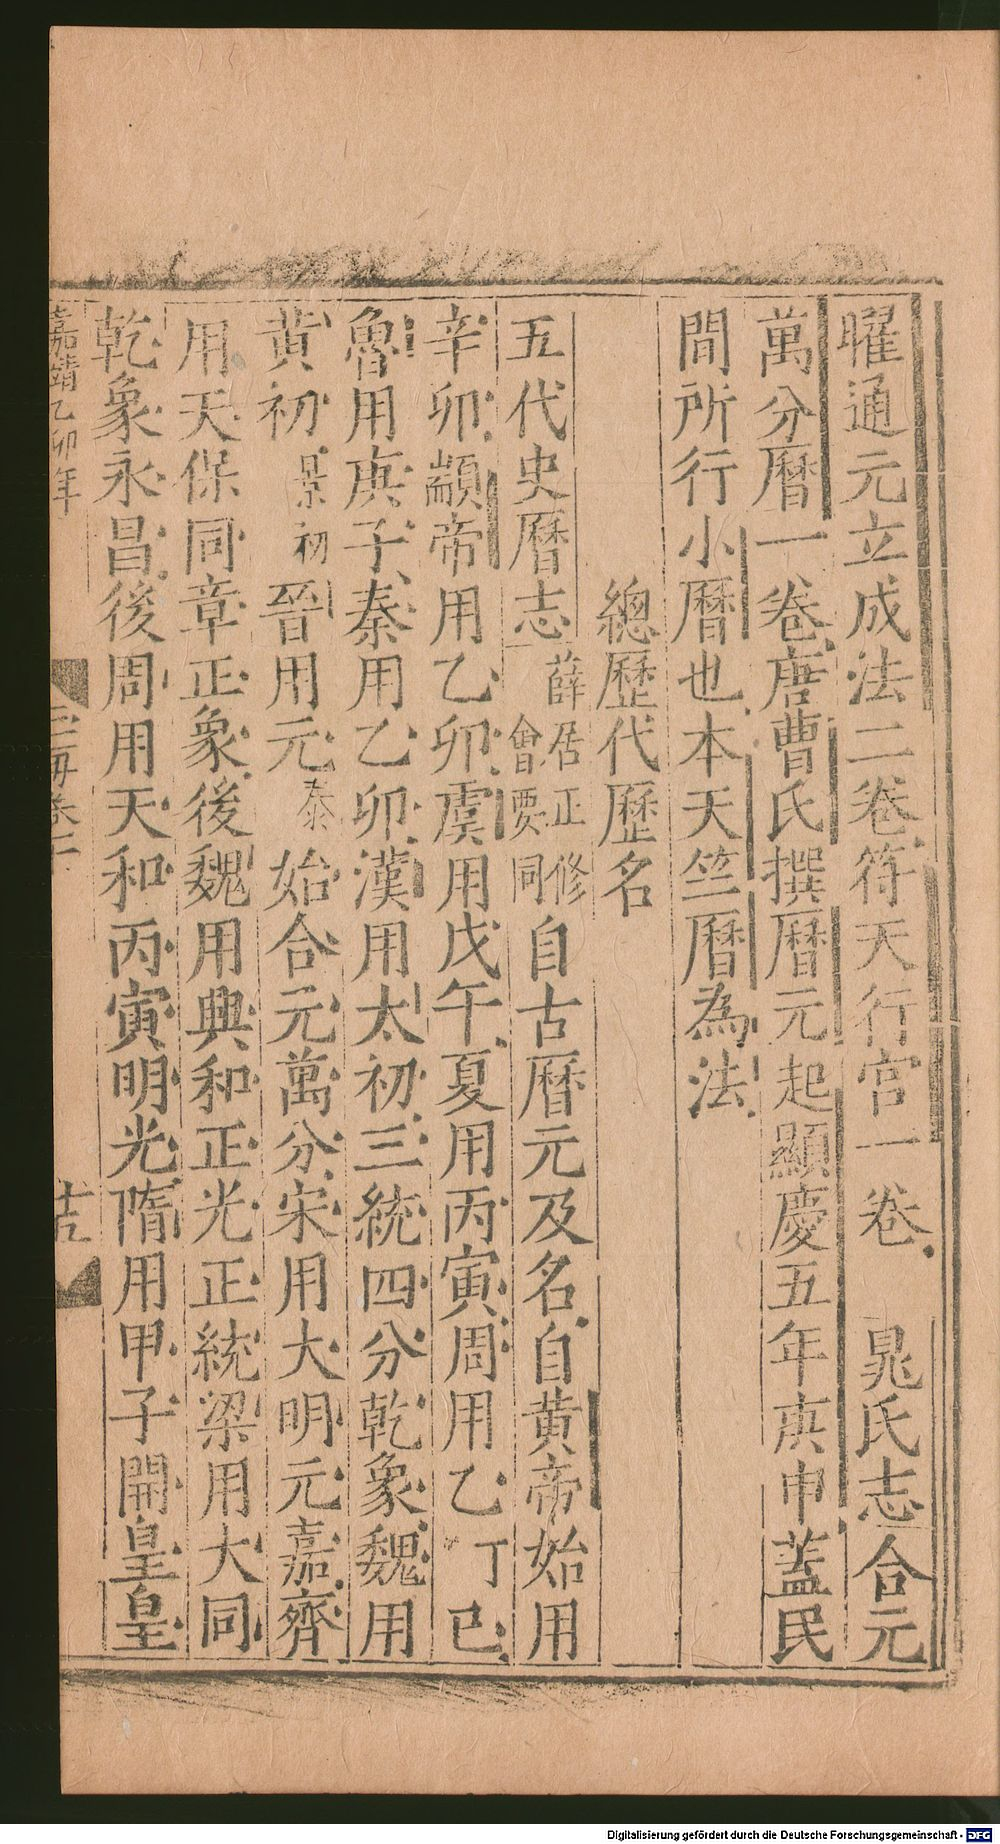 曜通元立成法二卷符天行宫一卷 晁氏志合元
萬分曆一卷唐曹氏撰曆元起顯慶五年庚申蓋民
間所行小曆也本天竺曆為法
總歷代歷名
五代史曆志薛居正修會要同自古曆元及名自黄帝始用
辛卯顓帝用乙卯虞用戊午夏用丙寅周用乙丁巳
魯用庚子秦用乙卯漢用太初三統四分乾象魏用
黄初景初晉用元泰始合元萬分宋用大明元嘉齊
用天保同章正象後魏用興和正光正統梁用大同
乾象永昌後周用天和丙寅明光隋用甲子開皇皇
嘉靖乙卯年
Digitalisierung gefördert durch die Deutsche Forschungsgemeinschaft - DFG